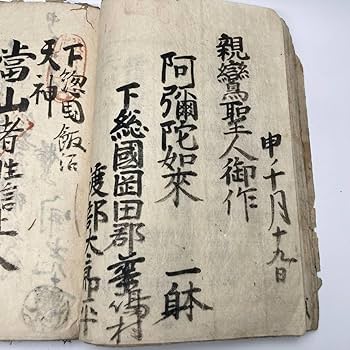 申ノ十月十九日
親鸞聖人御作
阿彌陀如來 一躰
下総國岡田郡
渡部
下総國飯沼
天神
當山者性信上人